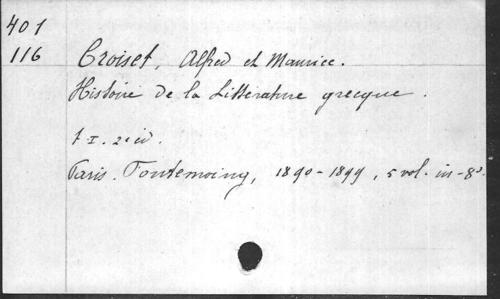 401
116
Croiset, Alfred et Maurice.
Histoire de la Littérature grecque.
t I. 2e éd.
Paris. Fontemoing, 1890-1899, 5 vol. in-8º